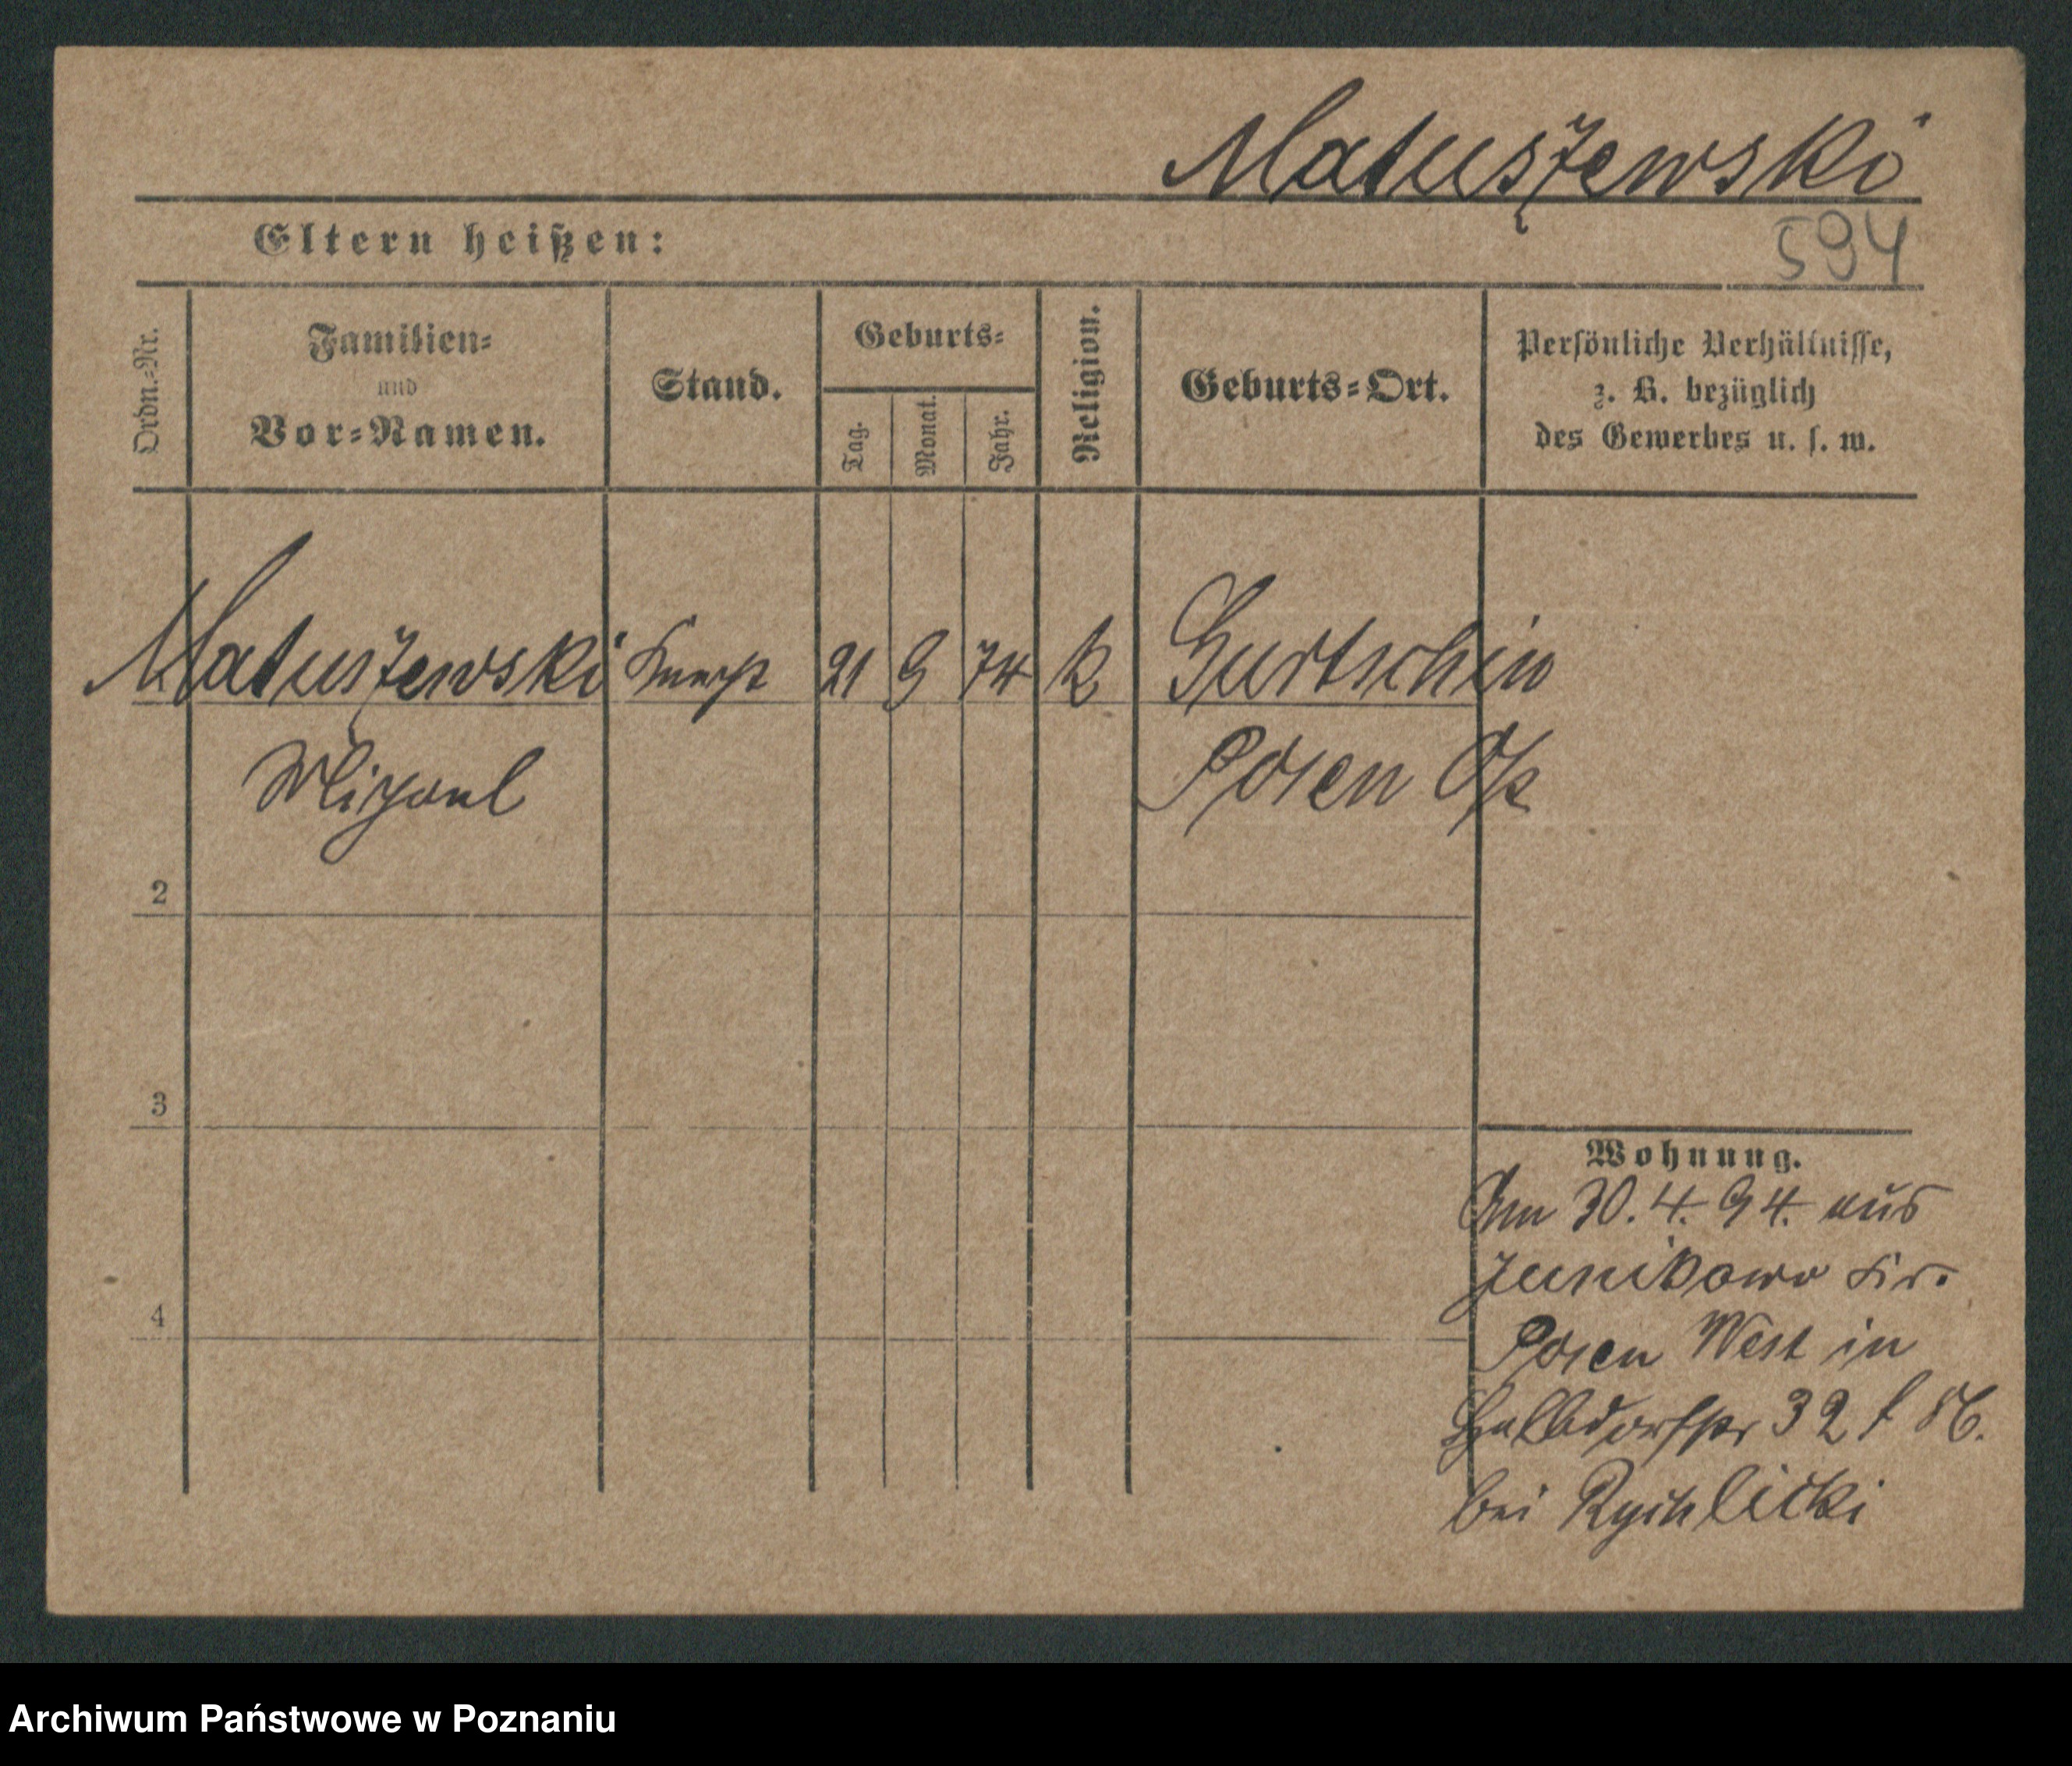 Matuszewski
Eltern heißen:
594
Ordn.-Nr.
Familien-
und
Vor-Namen.
Stand.
Geburts-
Tag.
Monat.
Jahr.
Religion.
Geburts-Ort.
Persönliche Verhältnisse,
z. B. bezüglich
des Gewerbes u. s. w.
Matuszewski Knecht 21 9 74 K Gurtschin
Posen
2
3
4
Wohnung.
Am 30.4.94. aus
Junikowo Kr.
Posen West in
Halbdorfstr 32
bei Rychlicki
Archiwum Państwowe w Poznaniu